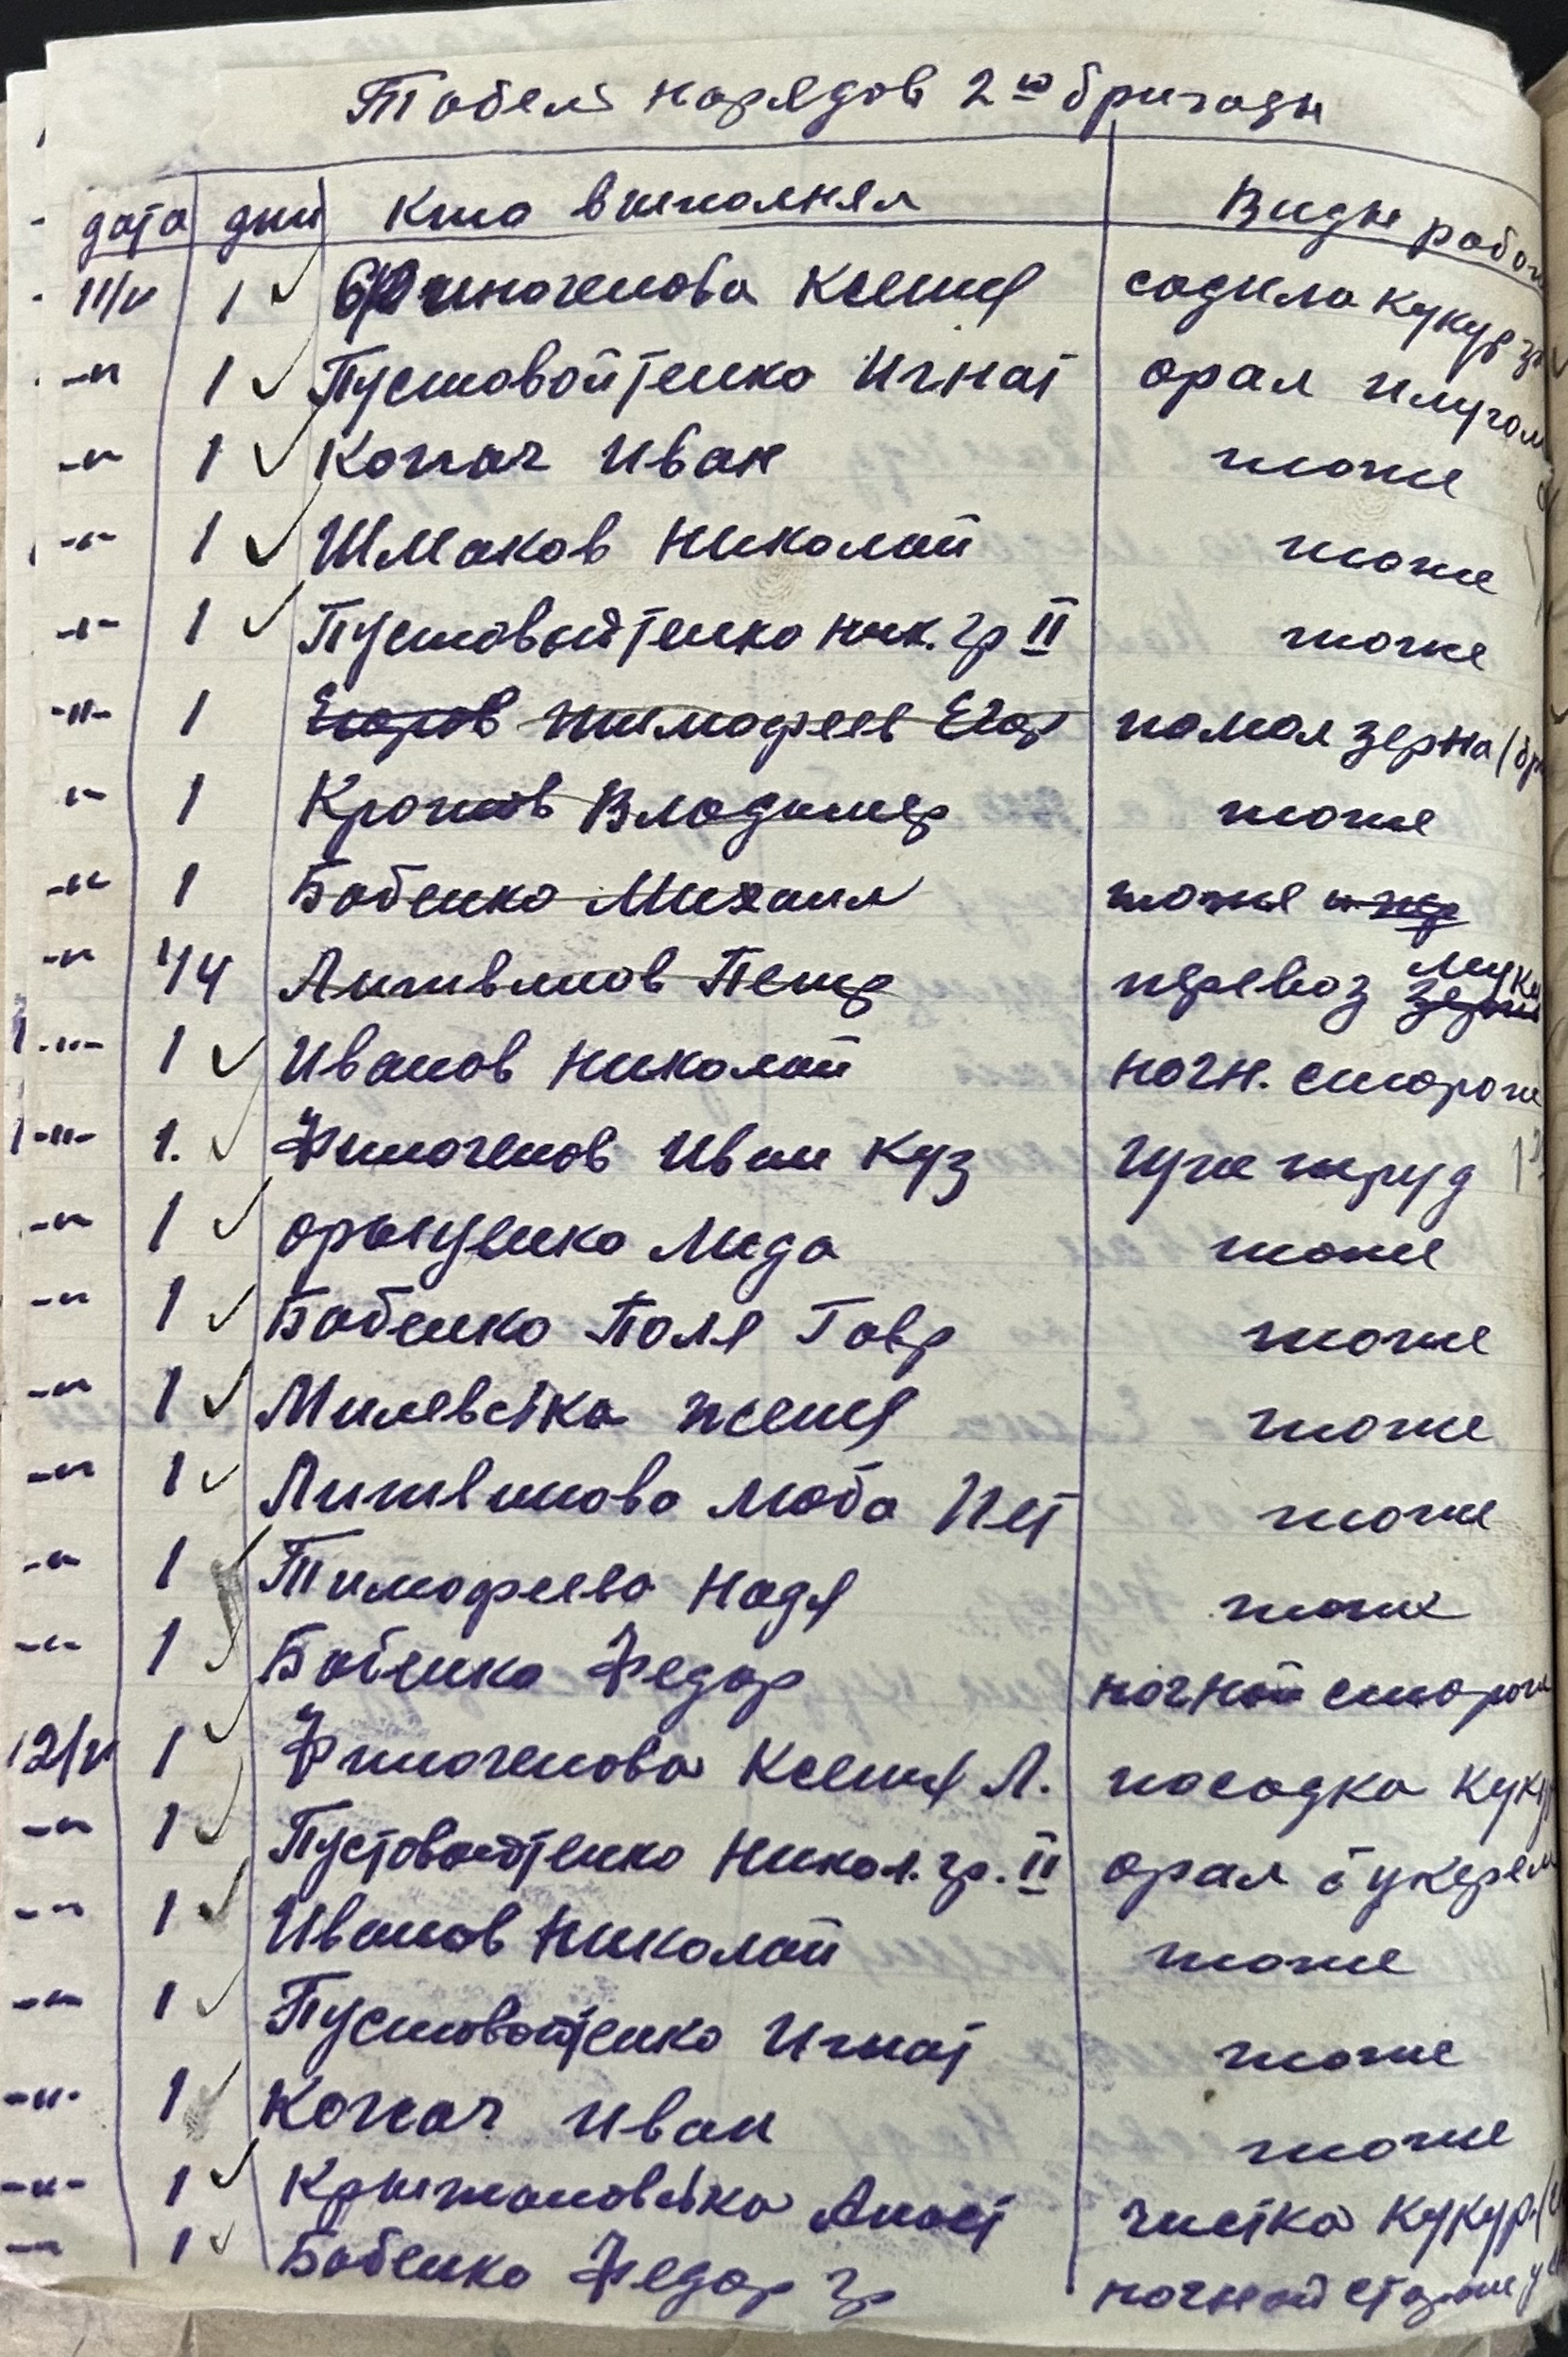 Табель нарядов 2ой бригады
дата дни Кто выполнял Виды работ
11/V 1 ✓ Финогенова Ксения садила кукуруз
-"- 1 ✓ Пустовойтенко Игнат орал плугом
-"- 1 ✓ Копач Иван тоже
-"- 1 ✓ Шмаков Николай тоже
-"- 1 ✓ Пустовойтенко Ник. Гр II тоже
-"- 1 Егоров Тимофеев Егор помол зерна
-"- 1 Кротов Владимер тоже
-"- 1 Бабенко Михаил тоже
-"- 1/4 Литвинов Петр перевоз зерна муки
-"- 1 ✓ Иванов Николай ночн. сторож
-"- 1. ✓ Финогенов Иван Куз гуж труд
-"- 1 ✓ Орынченко Лида тоже
-"- 1 ✓ Бабенко Поля Гавр тоже
-"- 1 ✓ Милевська Женя тоже
-"- 1 ✓ Литвинова Люба Пет тоже
-"- 1 ✓ Тимофеева Надя тоже
-"- 1 ✓ Бабенко Федор ночной сторож
12/V 1 ✓ Финогенова Ксения Л. посадка куку
-"- 1 ✓ Пустовойтенко Никол. Гр. II орал букерем
-"- 1 ✓ Иванов Николай тоже
-"- 1 ✓ Пустовойтенко Игнат тоже
-"- 1 ✓ Копач Иван тоже
-"- 1 ✓ Крыжановська Анаст чистка кукур.
-"- 1 ✓ Бабенко Федор Гр ночной сторож